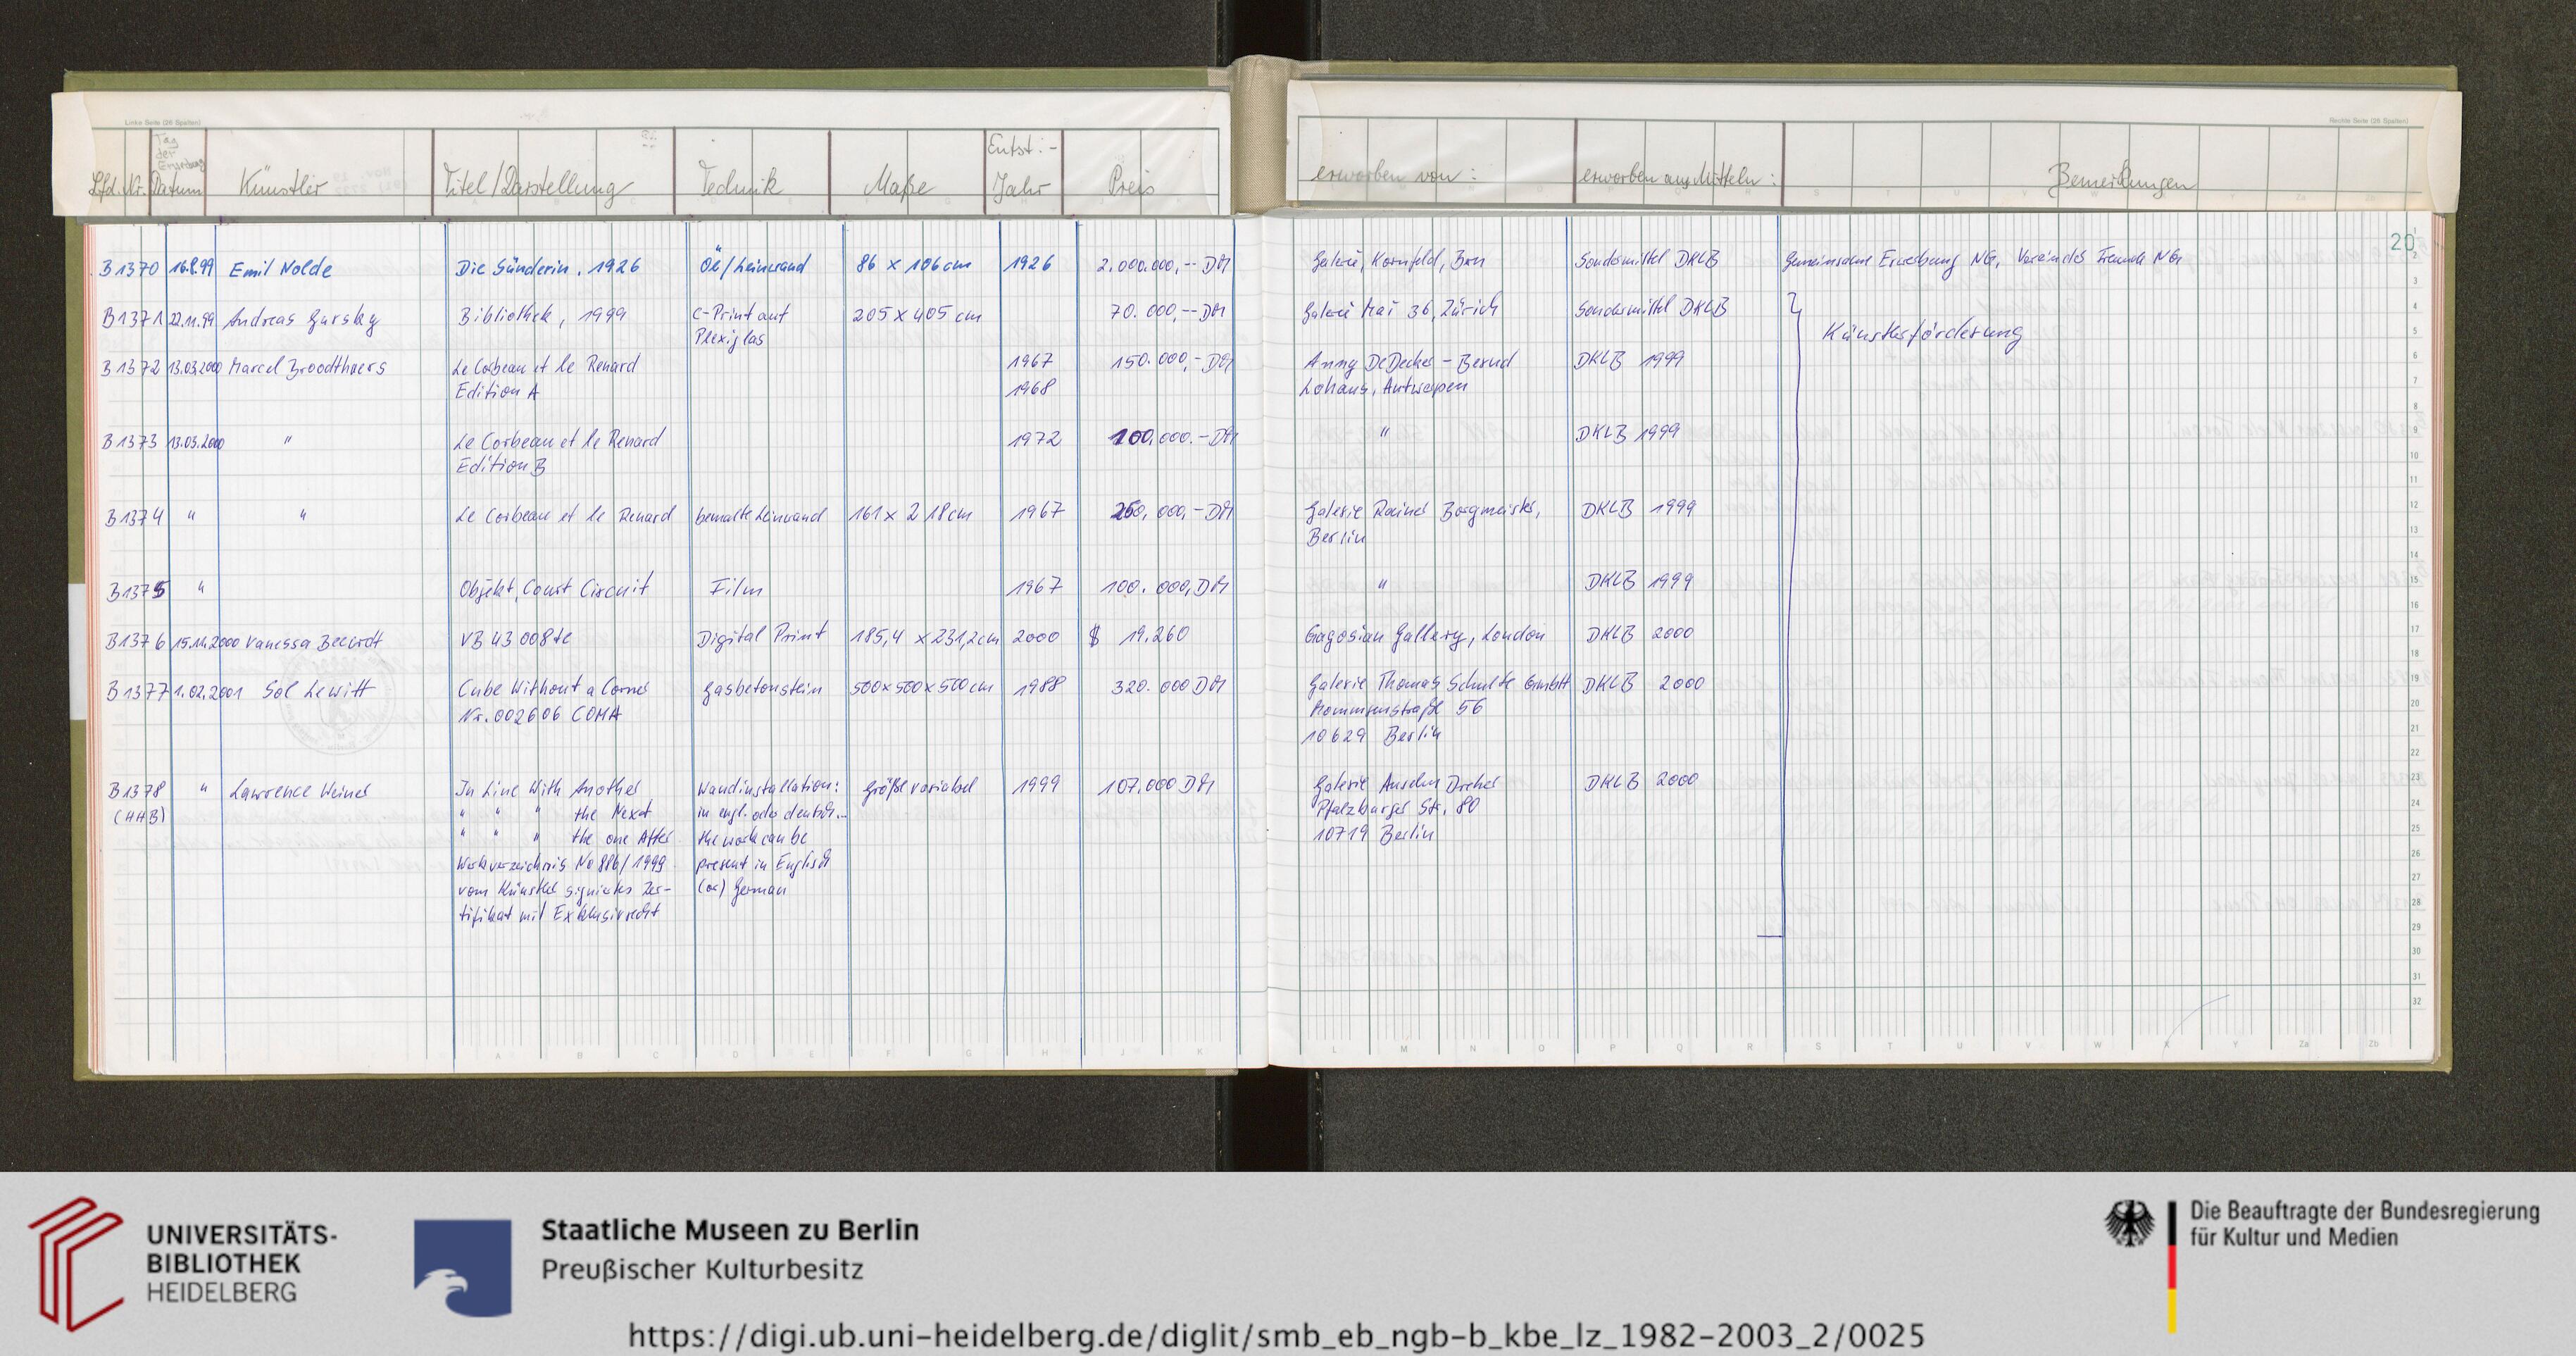 Linke Seite (26 Spalten)
Rechte Seite (26 Spalten)
Lfd. Nr. Tag der Erwerbung Datum Künstler Titel/Darstellung Technik Maße Entst.- Jahr Preis erworben von: erworben aus Mitteln: Bemerkungen
20
B 1370 16.8.99 Emil Nolde Die Sünderin, 1926 Öl/Leinwand 86 x 106 cm 1926 2.000.000,-- DM Galerie, Kornfeld, Bern Sondermittel DKLB Gemeinsame Erwerbung NG, Verein der Freunde NG
B 1371 22.11.99 Andreas Gursky Bibliothek, 1999 C-Print auf 205 x 405 cm 70.000,-- DM Galerie Mai 36, Zürich Sondermittel DKLB
Plexiglas
Künstlerförderung
B 1372 13.03.2000 Marcel Broodthaers Le Corbeau et le Renard 1967 150.000,- DM Anny DeDecker - Bernd DKLB 1999
Edition A 1968 Lohaus, Antwerpen
B 1373 13.03.2000 " Le Corbeau et le Renard 1972 100.000.- DM " DKLB 1999
Edition B
B 1374 " " Le Corbeau et le Renard bemalte Leinwand 161 x 218 cm 1967 250.000,- DM Galerie Rainer Borgmeister, DKLB 1999
Berlin
B 1375 " Objekt, Court Circuit Film 1967 100.000, DM " DKLB 1999
B 1376 15.11.2000 Vanessa Beecroft VB 43 008 te Digital Print 185,4 x 231,2 cm 2000 $ 19.260 Gagosian Gallery, London DKLB 2000
B 1377 1.02.2001 Sol Lewitt Cube Without a Corner Gasbetonstein 500 x 500 x 500 cm 1988 320.000 DM Galerie Thomas Schulte GmbH DKLB 2000
Nr. 002606 COMA Mommsenstraße 56
10629 Berlin
B 1378 " Lawrence Weiner In Line With Another Wandinstallation: Größe variabel 1999 107.000 DM Galerie Anselm Dreher DKLB 2000
(HHB) " " " the Next in engl. oder deutsch.. Pfalzburger Str. 80
" " " the one After the work can be 10719 Berlin
Werkverzeichnis No 886/1999 present in English
vom Künstler signiertes Zer- (or) German
tifikat mit Exklusivrecht
1
2
3
4
5
6
7
8
9
10
11
12
13
14
15
16
17
18
19
20
21
22
23
24
25
26
27
28
29
30
31
32
A B C D E F G H J K L M N O P Q R S T U V W X Y Za Zb
UNIVERSITÄTS-
BIBLIOTHEK
HEIDELBERG
Staatliche Museen zu Berlin
Preußischer Kulturbesitz
Die Beauftragte der Bundesregierung
für Kultur und Medien
https://digi.ub.uni-heidelberg.de/diglit/smb_eb_ngb-b_kbe_lz_1982-2003_2/0025